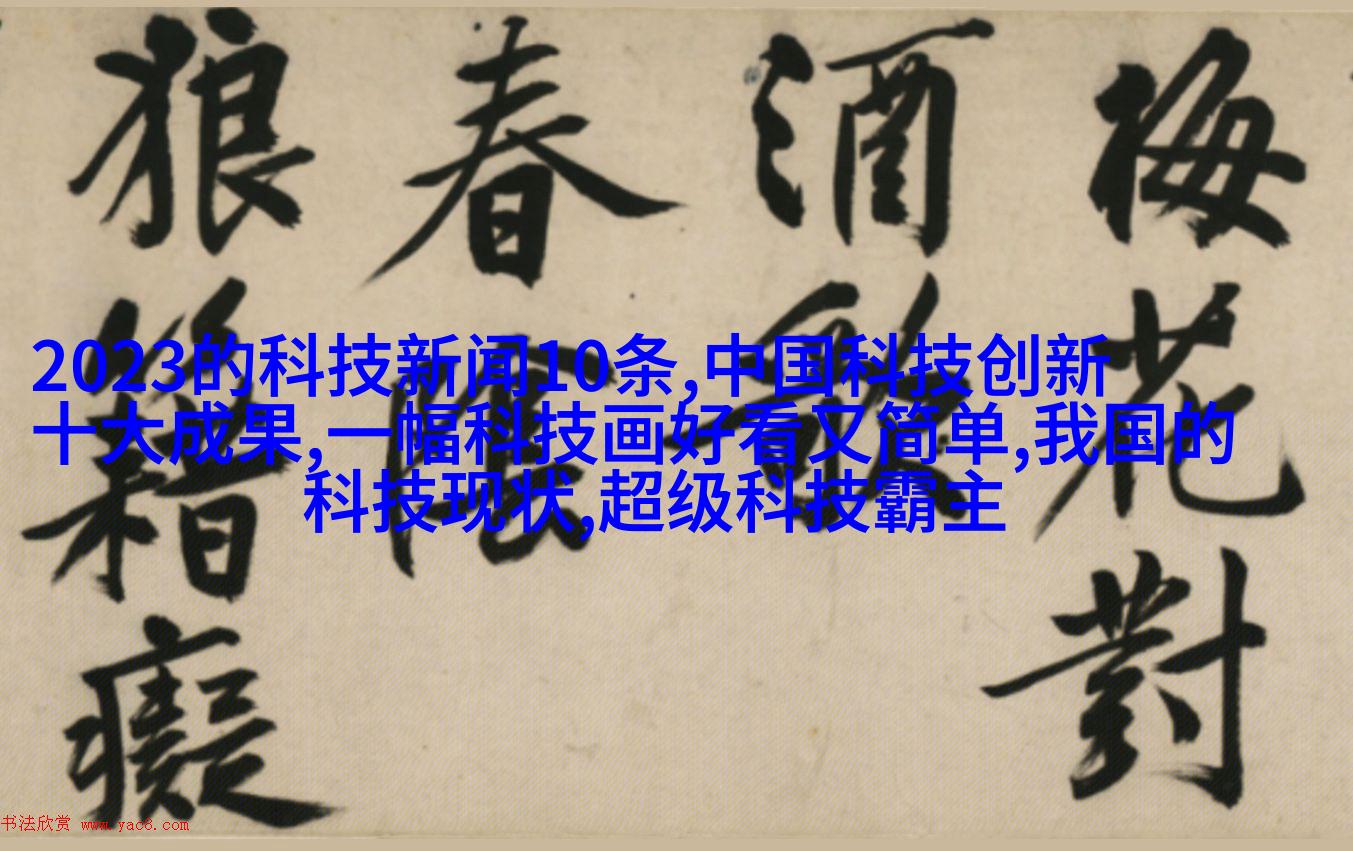 梅花對
酒
春
狼籍癡
2023的科技新闻10条,中国科技创新
十大成果,一幅科技画好看又简单,我国的
科技现状,超级科技霸主
书法欣赏 www.yac8.com